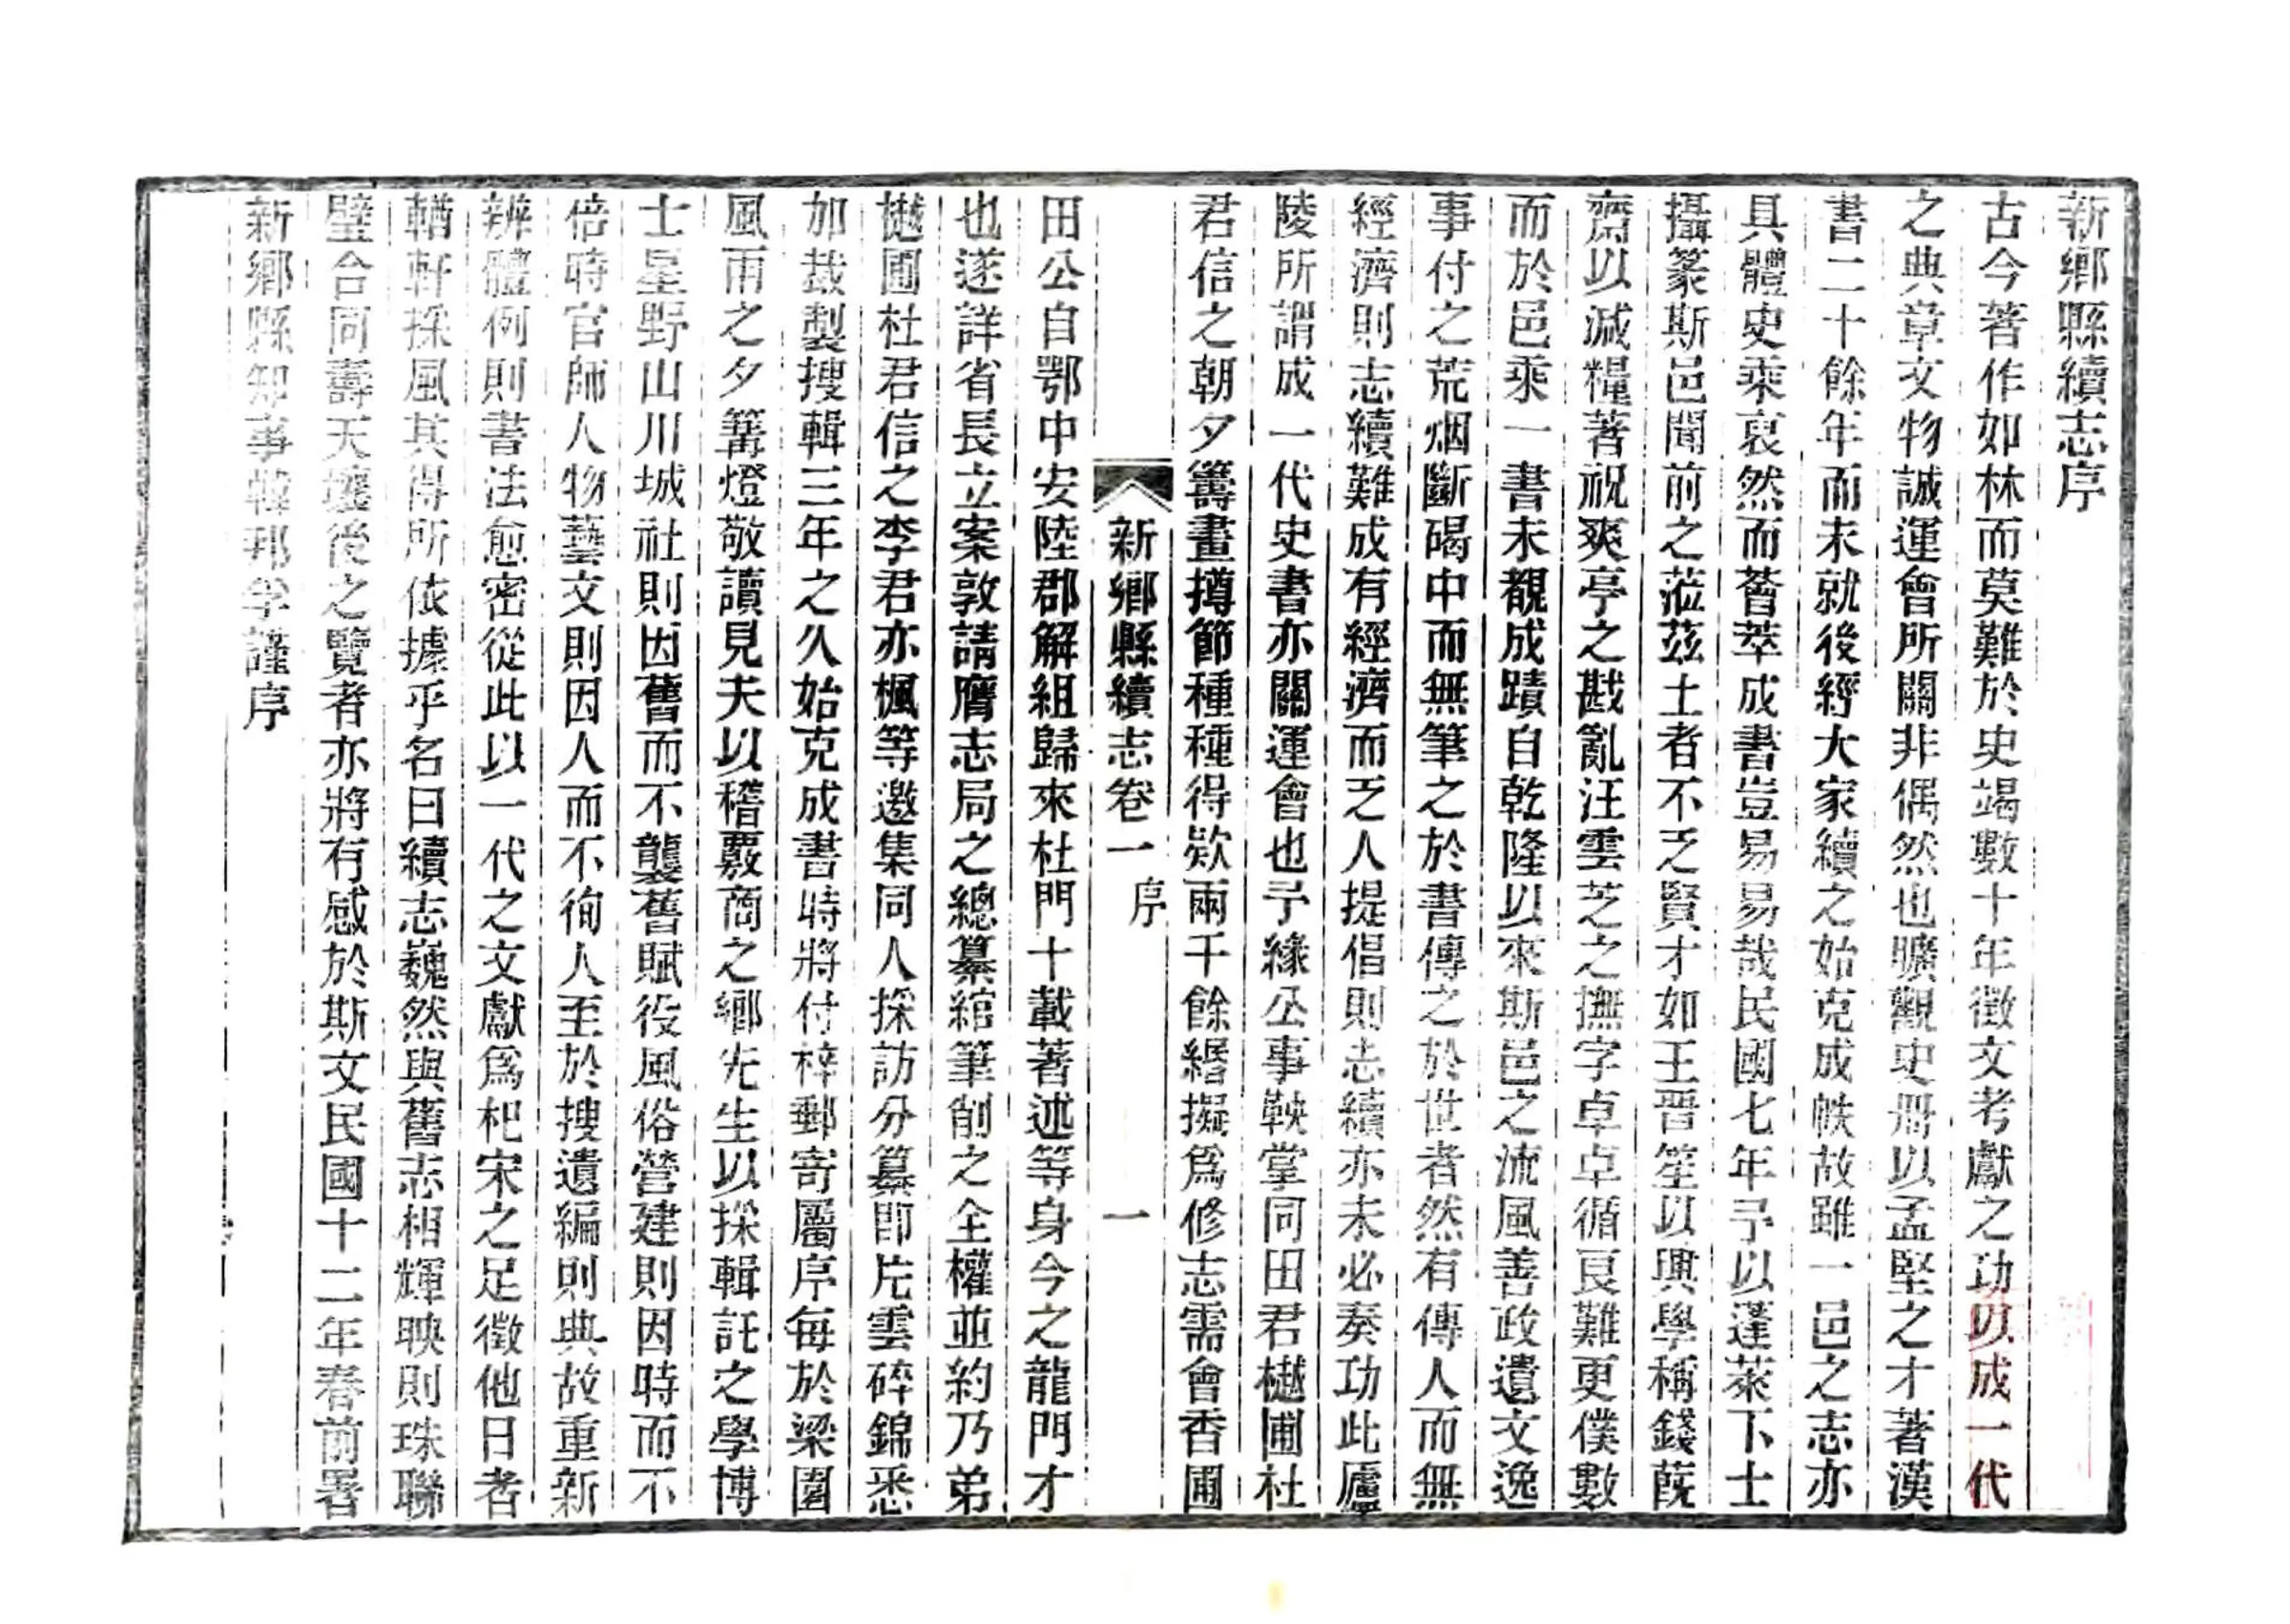 新鄉縣續志序
古今著作如林而莫難於史竭數十年徵文考獻之功以成一代
之典章文物誠運會所關非偶然也曠觀史册以孟堅之才著漢
書二十餘年而未就後經大家續之始克成帙故雖一邑之志亦
具體史乘裒然而薈萃成書豈易易哉民國七年予以蓬萊下士
攝篆斯邑聞前之蒞茲土者不乏賢才如王晋笙以興學稱錢蔬
齋以減糧著祝爽亭之戡亂汪雲芝之撫字卓卓循良難更僕數
而於邑乘一書未覩成蹟自乾隆以來斯邑之流風善政遺文逸
事付之荒烟斷碣中而無筆之於書傳之於世者然有傳人而無
經濟則志續難成有經濟而乏人提倡則志續亦未必奏功此廬
陵所謂成一代史書亦關運會也予緣公事鞅掌同田君樾圃杜
君信之朝夕籌畫撙節種種得欵兩千餘緡擬爲修志需會香圃
新鄉縣續志卷一 序 一
田公自鄂中安陸郡解組歸來杜門十載著述等身今之龍門才
也遂詳省長立案敦請膺志局之總纂綰筆削之全權並約乃弟
樾圃杜君信之李君亦楓等邀集同人採訪分纂即片雲碎錦悉
加裁製搜輯三年之久始克成書時將付梓郵寄屬序每於梁園
風雨之夕篝燈敬讀見夫以稽覈商之鄉先生以採輯託之學博
士星野山川城社則因舊而不襲舊賦役風俗營建則因時而不
倍時官師人物藝文則因人而不徇人至於搜遺編則典故重新
辨體例則書法愈密從此以一代之文獻爲杞宋之足徵他日者
輶軒採風其得所依據乎名曰續志巍然與舊志相輝映則珠聯
璧合同壽天壤後之覽者亦將有感於斯文民國十二年春前署
新鄉縣知事韓邦孚謹序